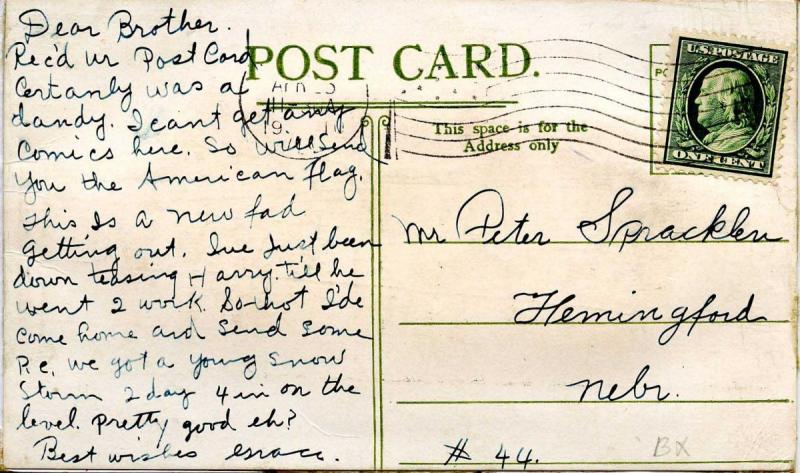 Dear Brother.
Rec'd ur Post Card
Certanly was a
dandy. I cant get any
Comics here. So will send
You the American flag.
This Is a new fad
getting out. Ive Just been
down teasing Harry. till he
went 2 work. So-thot I'de
Come home and Send Some
P.c. we got a young Snow
Storm 2 day 4 in on the
level. Pretty good eh?
Best wishes
POST CARD.
This space is for the
Address only
PO
U.S. POSTAGE
ONE CENT
Mr Peter Spracklen
Hemingford
Nebr.
# 44.
BX